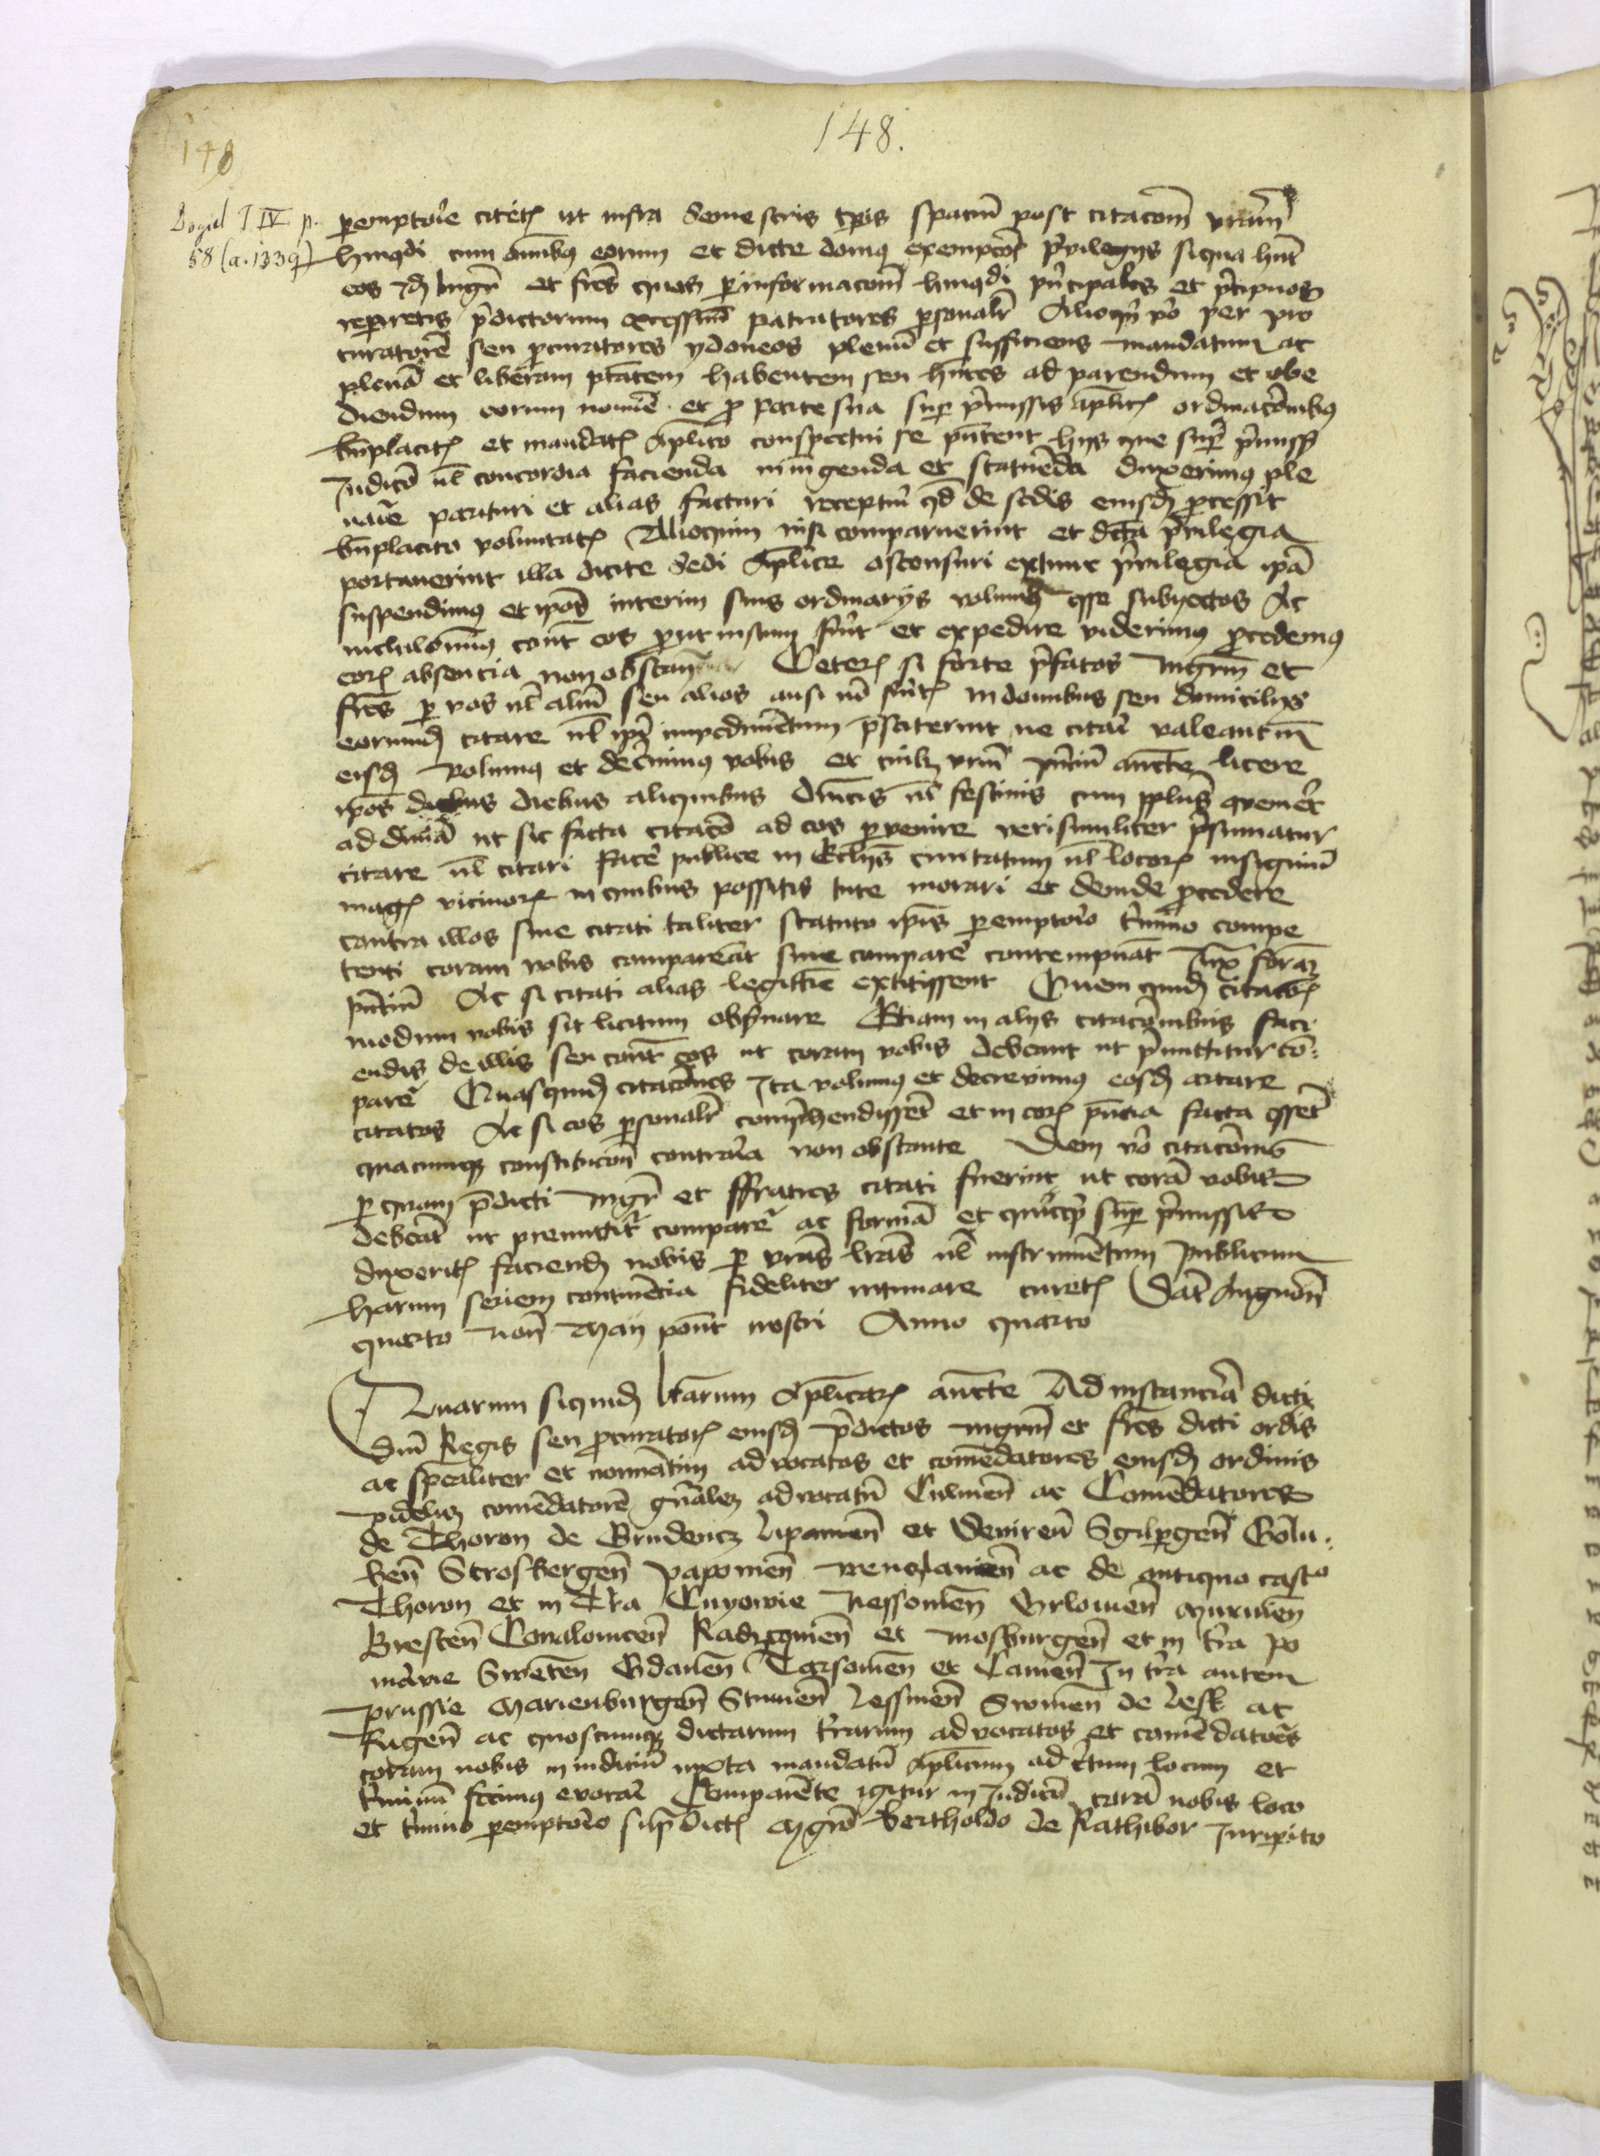 148.
148
Dogiel T IV p.
58 (a. 1339)
peremptorie citetis ut infra Semestris tpis spacium post citacom vram
huiqdi cum omibus eorum et dicte domus exempcois privilegiis siqua hnt
eos Mgr et fres quos per informacom huiqdi principales et precipuos
reperietis predictorum excessuum patratores personalr Alioqn vero per pro
curatorem seu procuratores ydoneos plenum et sufficiens mandatum ac
plenam et liberam ptatem habentem seu hntes ad parendum et obe
diendum eorum nomine et pro parte sua super premissis aplicis ordinacoibus
bnplacitis et mandatis Aplico conspectui se pntent hiis que super premissis
Judicio vel concordia facienda iniungenda et statuenda duxerimus ple
narie parituri et alias facturi recepturi qd de sedis eiusdem processerit
bnplacito voluntatis Alioquin nisi comparuerint et dcta privilegia
portaverint illa dicte Sedi Aplice ostensuri extunc privilegia ipa
suspendimus et ipos interim suis ordinariis volumus esse subiectos Ac
nichilominus contra eos prout iustum fuerit et expedire viderimus procedemus
eorum absencia non obstan Ceterum si forte prefatos Mgrm et
fres per vos vel alium seu alios ausi non fueritis in domibus seu domiciliis
eorundem citare vel ipi impedimentum prestiterint ne citari valeant in
eisdem Volumus et decernimus vobis et cuilibet vrum pntium aucte licere
ipos diebus aliquibus dnicis vel festivis cum populus convenerit
ad divina ut sic facta citaco ad eos pervenire verisimiliter presumatur
citare vel citari facere publice in Ecclesiis civitatum vel locorum insignium
magis vicinorum in quibus possitis tute morari et deinde procedere
contra illos sive citati taliter statuto ipis peremptorio termino compe
tenti coram vobis compareant sive comparere contempnant Juxta formam
pntium Ac si citati alias legittime extitissent Quem quidem citacois
modum vobis sit licitum observare Etiam in aliis citacoibus faci
endis de illis seu contra eos ut coram vobis debeant ut premittitur com
parere Quasquidem citacoes Ita volumus et decrevimus eosdem artare
citatos Ac si eos personalr comprehendissent et in eorum pntia facta essent
quacumque constitucone contraria non obstante Diem vero citacois
per quam predicti Mgr et ffratres citati fuerint ut coram vobis
debeant ut premittitur comparere ac formam et quicquid super premissis
duxeritis faciendum nobis per vras lras vel instrumentum publicum
harum seriem continencia fideliter intimare curetis Dat Avinion
quarto Non Maii pont nostri Anno quarto
Quarum siquidem lrarum Aplicarum aucte Ad instanciam dicti
dni Regis seu procuratoris eiusdem predictos Mgrm et fres dicti ordis
ac specialiter et nominatim advocatos et comendatores eiusdem ordinis
videlicet comendatorem generalem advocatum Culmen ac Comendatores
de Thoron de Grudencz Lipamen et Beniren Sgilpergen Golu
ben Strosbergen Papowien Wenclanien ac de antiquo castro
Thoron et in Tra Cuyowie Nessowien Orlowien Muriwen
Bresten Conalowicen Radzeowien et Mosburgen et in tra Po
maranie Sweten Gdanen Tarsowien et Camen In tra autem
Prussie Marienburgen Stuwen Lessinen Swinen de Lesk ac
Rugen ac quoscumque dictarum terrarum advocatos et comendatores
coram nobis in iudicium iuxta mandatum Aplicum ad certum locum et
terminum fecimus evocari Comparente igitur in Judicio coram nobis loco
et termino peremptorio supradictis Mgro Bertholdo de Rathibor Jurisperito